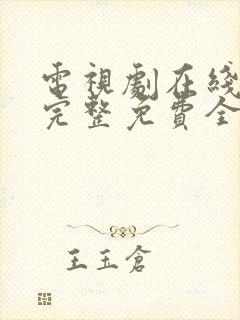 電視劇在綫
完整免費全
王玉倉